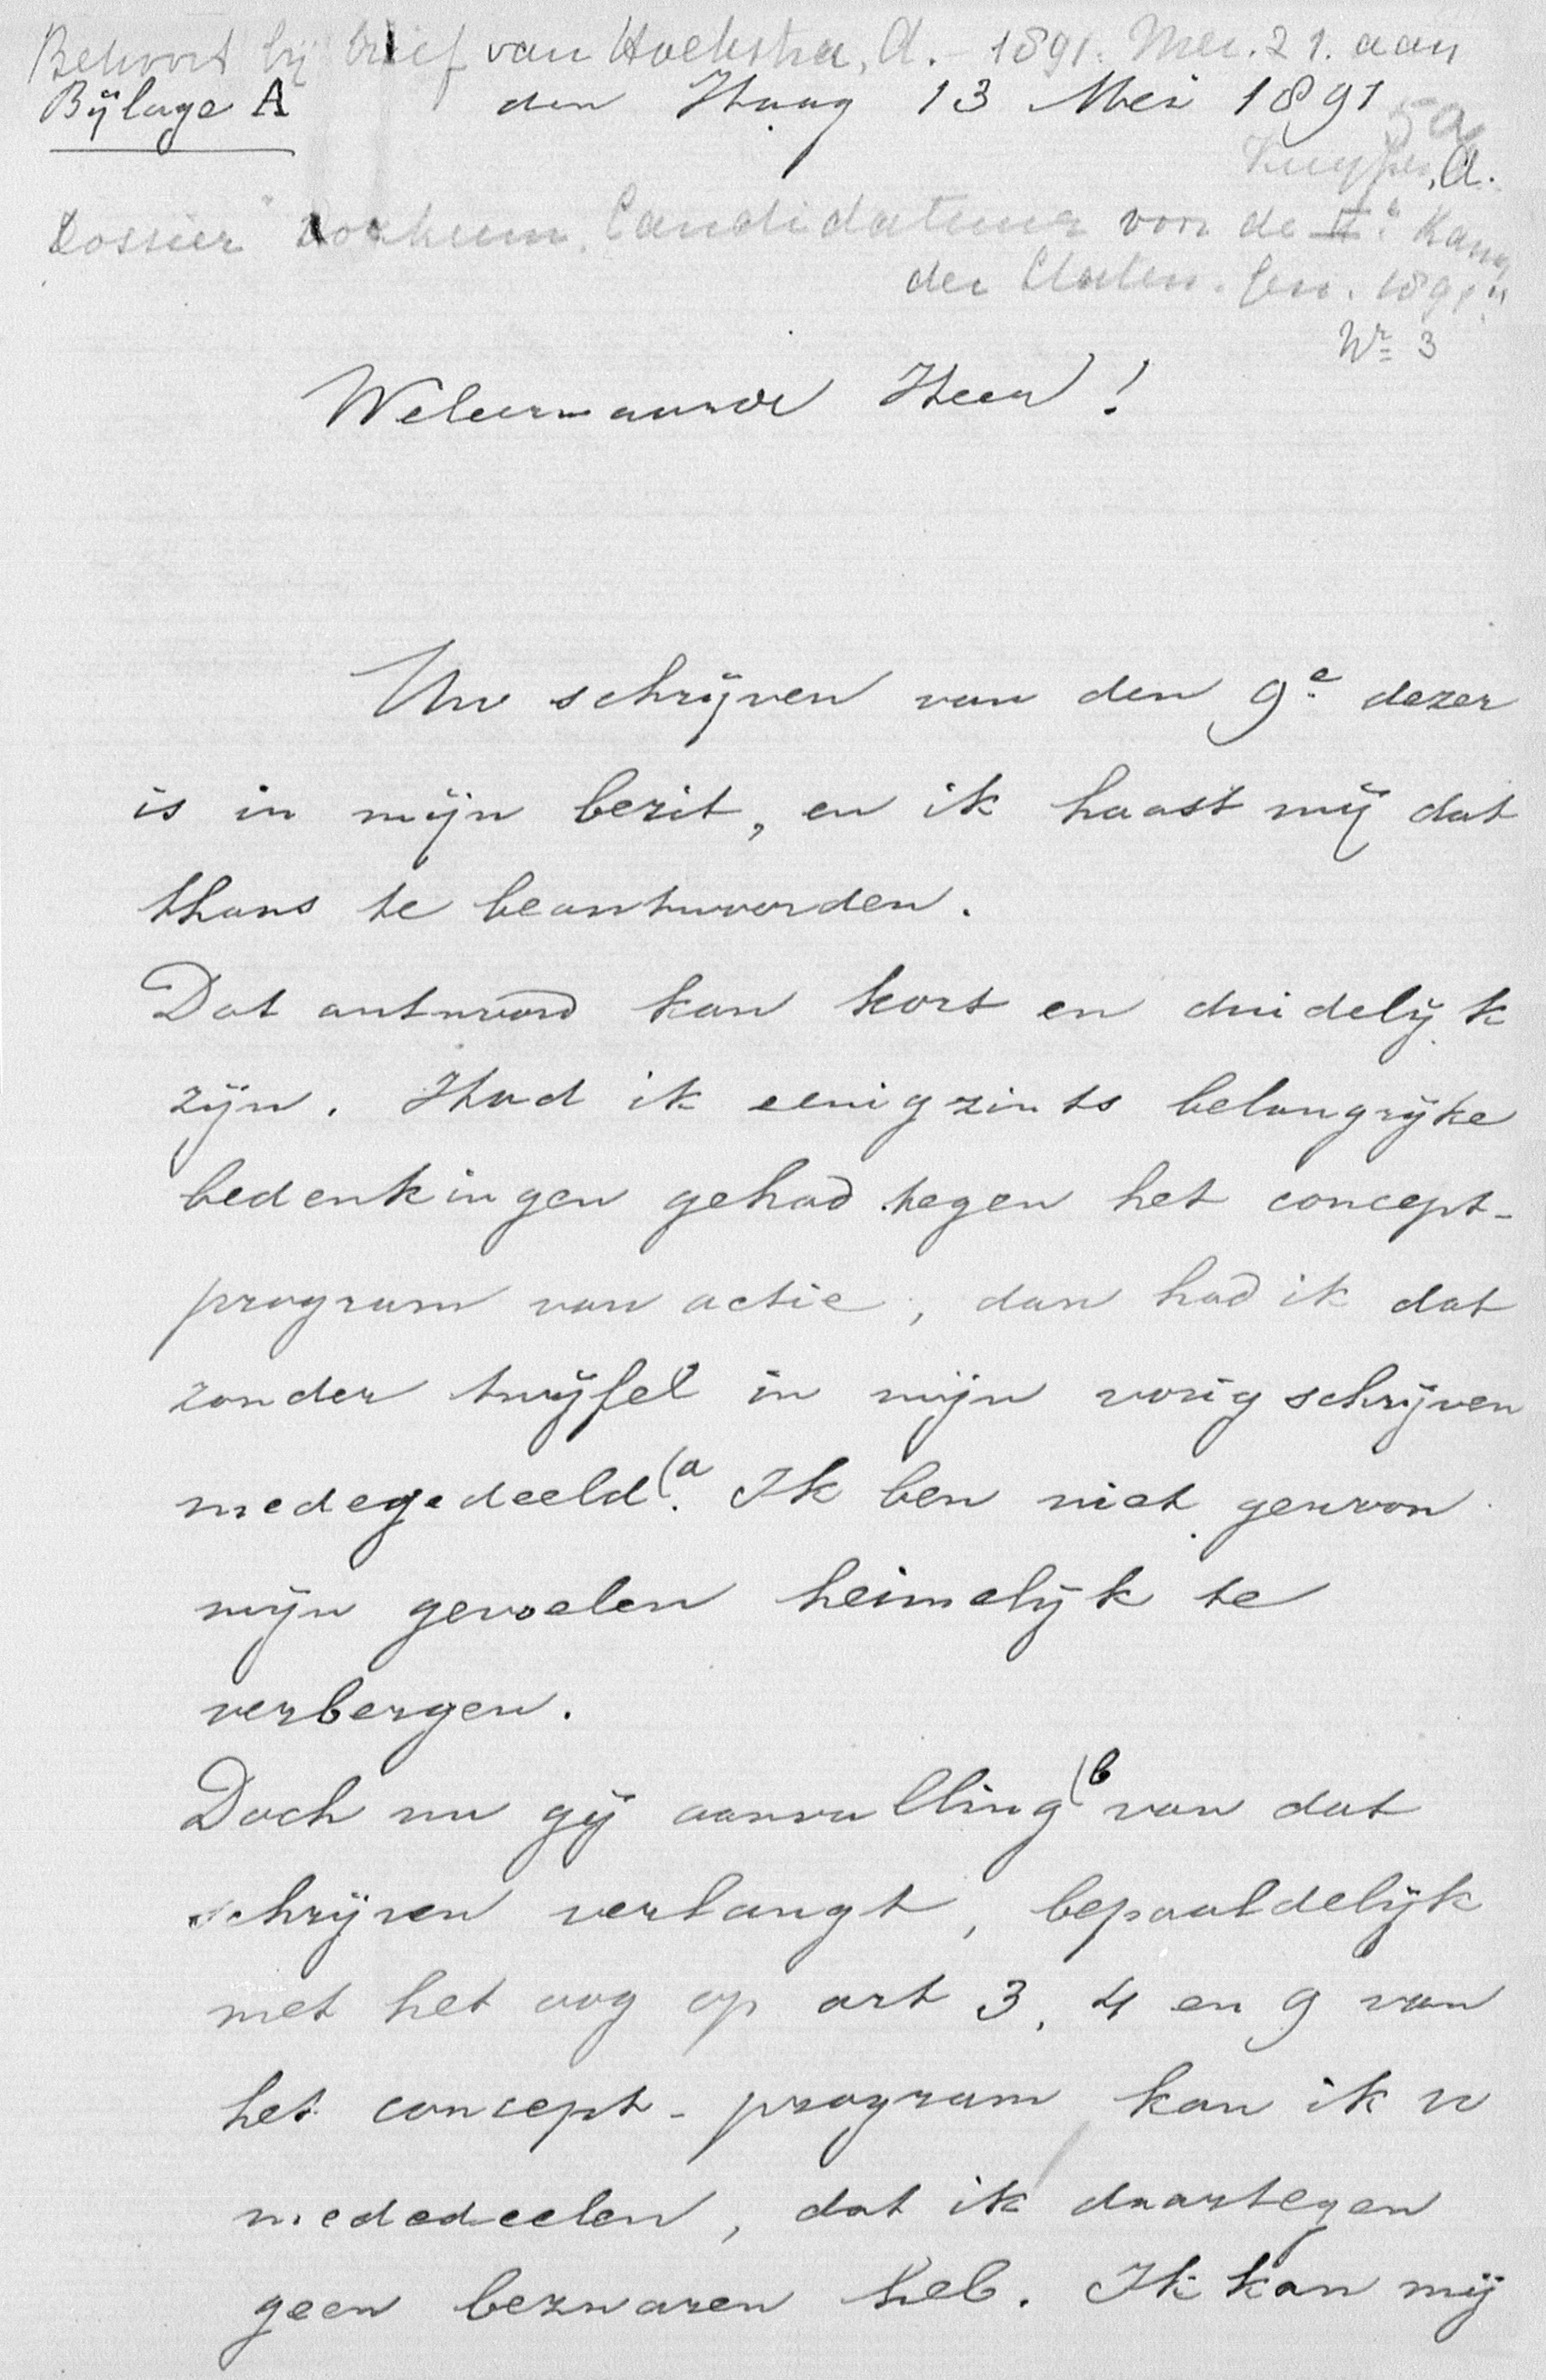 Behoort bij brief van Hoekstra, A. 1891. Mei. 21. aan
Bijlage A den Haag 13 Mei 1891
5a
Kuyper, A.
Dossier "Dockum. Candidatuur voor de IIe Kamer
der Staten. Gen. 1891"
Nr 3
Weleerwaarde Heer!
Uw schrijven van den 9e dezer
is in mijn bezit, en ik haast mij dat
thans te beantwoorden.
Dat antwoord kan kort en duidelijk
zijn. Had ik eenigzints belangrijke
bedenkingen gehad tegen het concept-
program van actie, dan had ik dat
zonder twijfel in mijn vorig schrijven
medegedeeld(a. Ik ben niet gewoon
mijn gevoelen heimelijk te
verbergen.
Doch nu gij aanvulling(b van dat
schrijven verlangt, bepaaldelijk
met het oog op art 3, 4 en 9 van
het concept-program kan ik u
mededeelen, dat ik daartegen
geen bezwaren heb. Ik kan mij